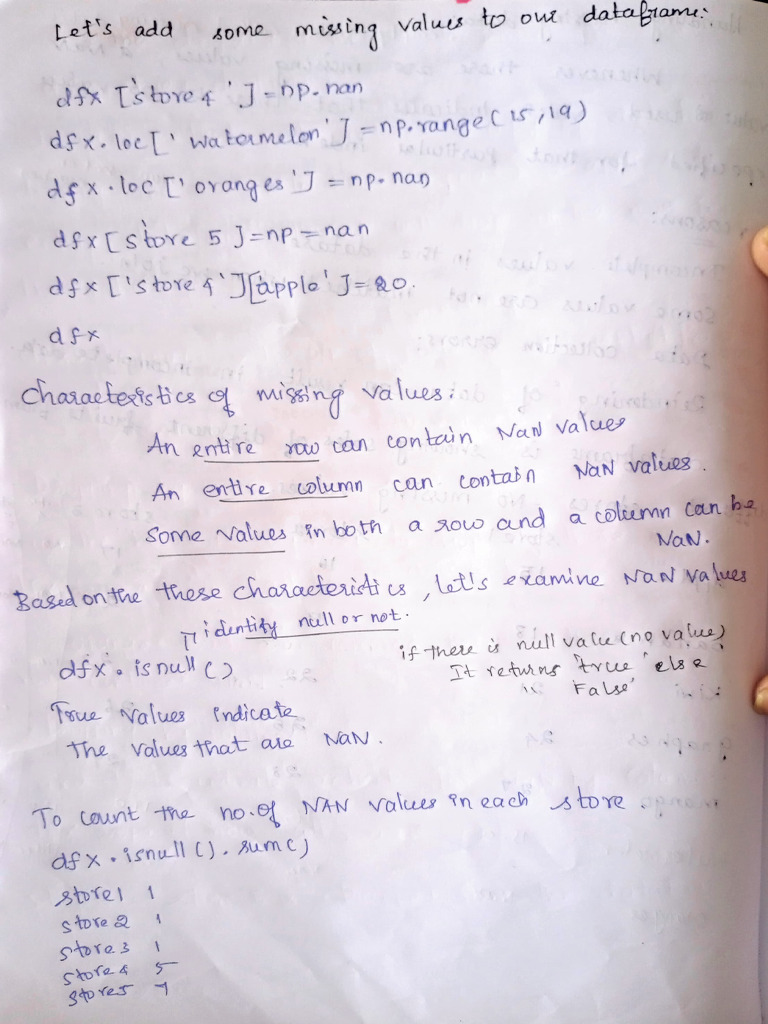 Let's add some missing values to our dataframe:
dfx ['store4'] = np.nan
dfx.loc['watermelon'] = np.range(15,19)
dfx.loc['oranges'] = np.nan
dfx['store 5] = np = nan
dfx ['store 4'][apple'] = 20.
dfx
Characteristics of missing values:
An entire row can contain NaN values
An entire column can contain NaN values.
Some values in both a row and a column can be
NaN.
Based on the these characteristics, let's examine NaN values
identify null or not.
dfx.isnull()
if there is null value (no value)
It returns 'true' else
" False'
True values indicate
The values that are NaN.
To count the no.of NAN values in each store.
dfx.isnull().sum()
store1 1
store2 1
store3 1
store4 5
store5 7